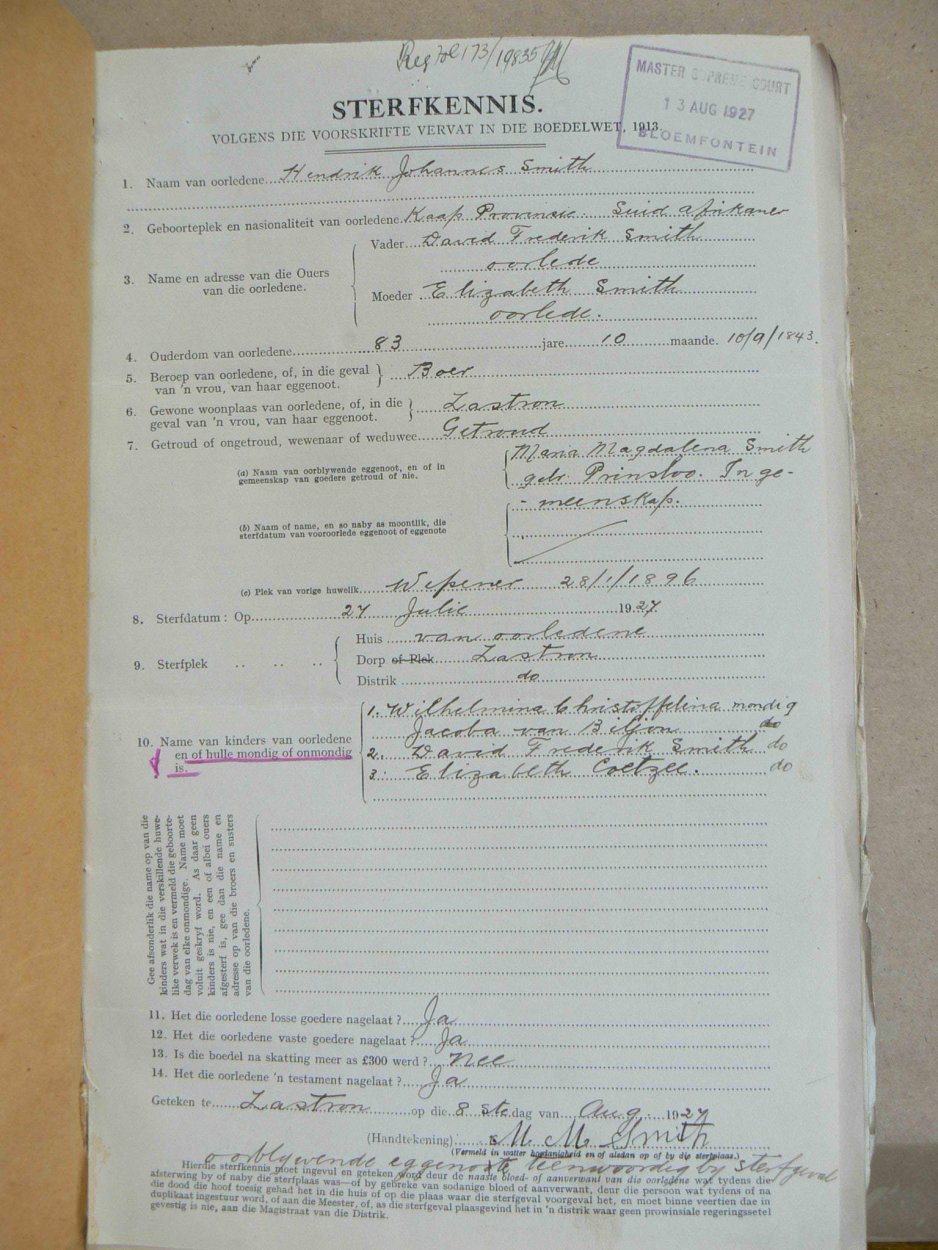 Reg Fol 173/19835
MASTER SUPREME COURT
13 AUG 1927
BLOEMFONTEIN
STERFKENNIS.
VOLGENS DIE VOORSKRIFTE VERVAT IN DIE BOEDELWET, 1913.
1. Naam van oorledene Hendrik Johannes Smith
2. Geboorteplek en nasionaliteit van oorledene Kaap Provinsie. Suid Afrikaner
3. Name en adresse van die Ouers van die oorledene.
Vader David Frederik Smith
oorlede
Moeder Elizabeth Smith
oorlede.
4. Ouderdom van oorledene 83 jare 10 maande. 10/9/1843.
5. Beroep van oorledene, of, in die geval
van 'n vrou, van haar eggenoot. Boer
6. Gewone woonplaas van oorledene, of, in die
geval van 'n vrou, van haar eggenoot. Zastron
7. Getroud of ongetroud, wewenaar of weduwee Getroud
(a) Naam van oorblywende eggenoot, en of in
gemeenskap van goedere getroud of nie.
Maria Magdalena Smith
geb. Prinsloo. In ge-
-meenskap.
(b) Naam of name, en so naby as moontlik, die
sterfdatum van vooroorlede eggenoot of eggenote
(c) Plek van vorige huwelik Wepener 28/1/1896
8. Sterfdatum: Op 27 Julie 1927
9. Sterfplek
Huis van oorledene
Dorp of Plek Zastron
Distrik do
10. Name van kinders van oorledene
en of hulle mondig of onmondig
is.
1. Wilhelmina Christoffelina mondig
Jacoba van Biljon do
2. David Frederik Smith do
3. Elizabeth Coetzee. do
Gee afsonderlik die name op van die
kinders wat in die verskillende huwe-
like verwek is en vermeld die geboorte-
dag van elke onmondige. Name moet
voluit geskryf word. As daar geen
kinders is nie, en een of albei ouers
afgesterf is, gee dan die name en
adresse op van die broers en susters
van die oorledene.
11. Het die oorledene losse goedere nagelaat? Ja
12. Het die oorledene vaste goedere nagelaat? Ja
13. Is die boedel na skatting meer as £300 werd? Nee
14. Het die oorledene 'n testament nagelaat? Ja
Geteken te Zastron op die 8ste dag van Aug. 1927
(Handtekening) M. M. Smith
(Vermeld in watter hoedanigheid en of aldan op of by die sterfplaas.)
oorblywende eggenote teenwoordig by sterfgeval
Hierdie sterfkennis moet ingevul en geteken word deur de naaste bloed- of aanverwant van die oorledene wat tydens die
afsterwing by of naby die sterfplaas was—of by gebreke van sodanige bloed of aanverwant, deur die persoon wat tydens of na
die dood die hoof toesig gehad het in die huis of op die plaas waar die sterfgeval voorgeval het, en moet binne veertien dae in
duplikaat ingestuur word, of aan die Meester, of, as die sterfgeval plaasgevind het in 'n distrik waar geen provinsiale regeringssetel
gevestig is nie, aan die Magistraat van die Distrik.